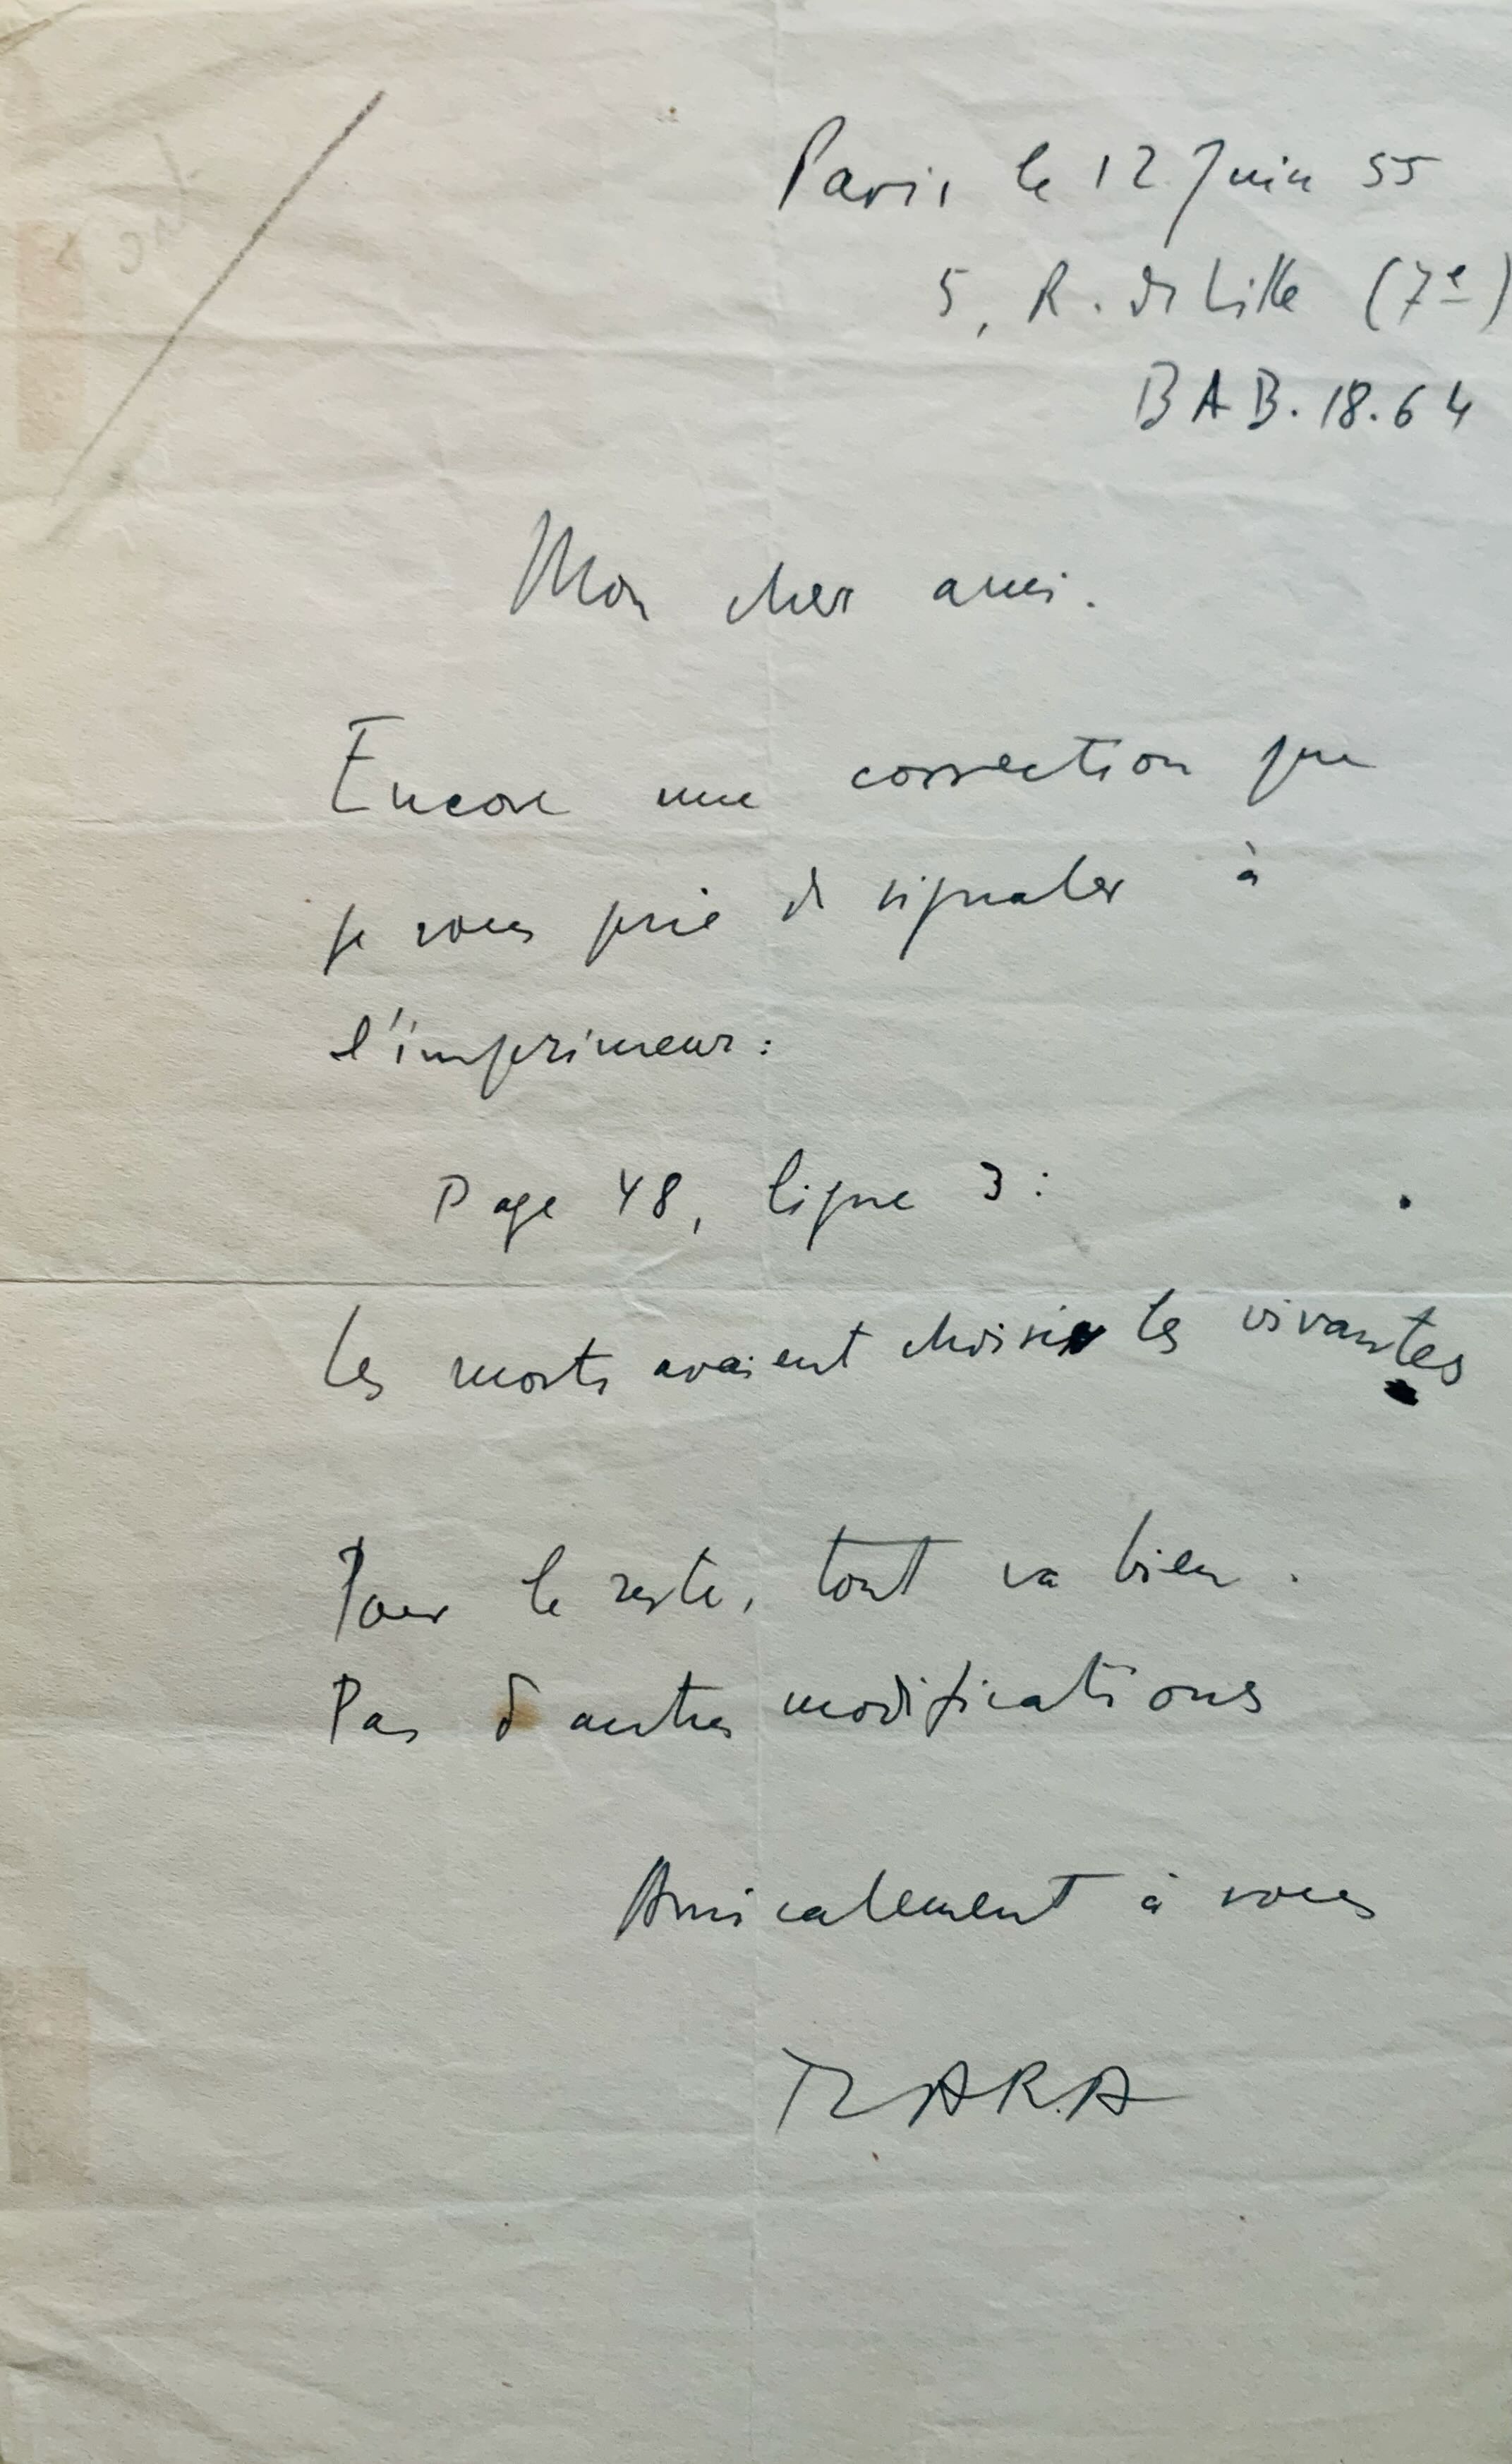 Paris le 12 Juin 55
5, R. de Lille (7e)
BAB. 18.64
Mon cher ami.
Encore une correction que
je vous prie de signaler à
l'imprimeur:
Page 48, ligne 3:
les morts avaient choisi les vivantes
Pour le reste, tout va bien.
Pas d'autres modifications
Amicalement à vous
TZARA